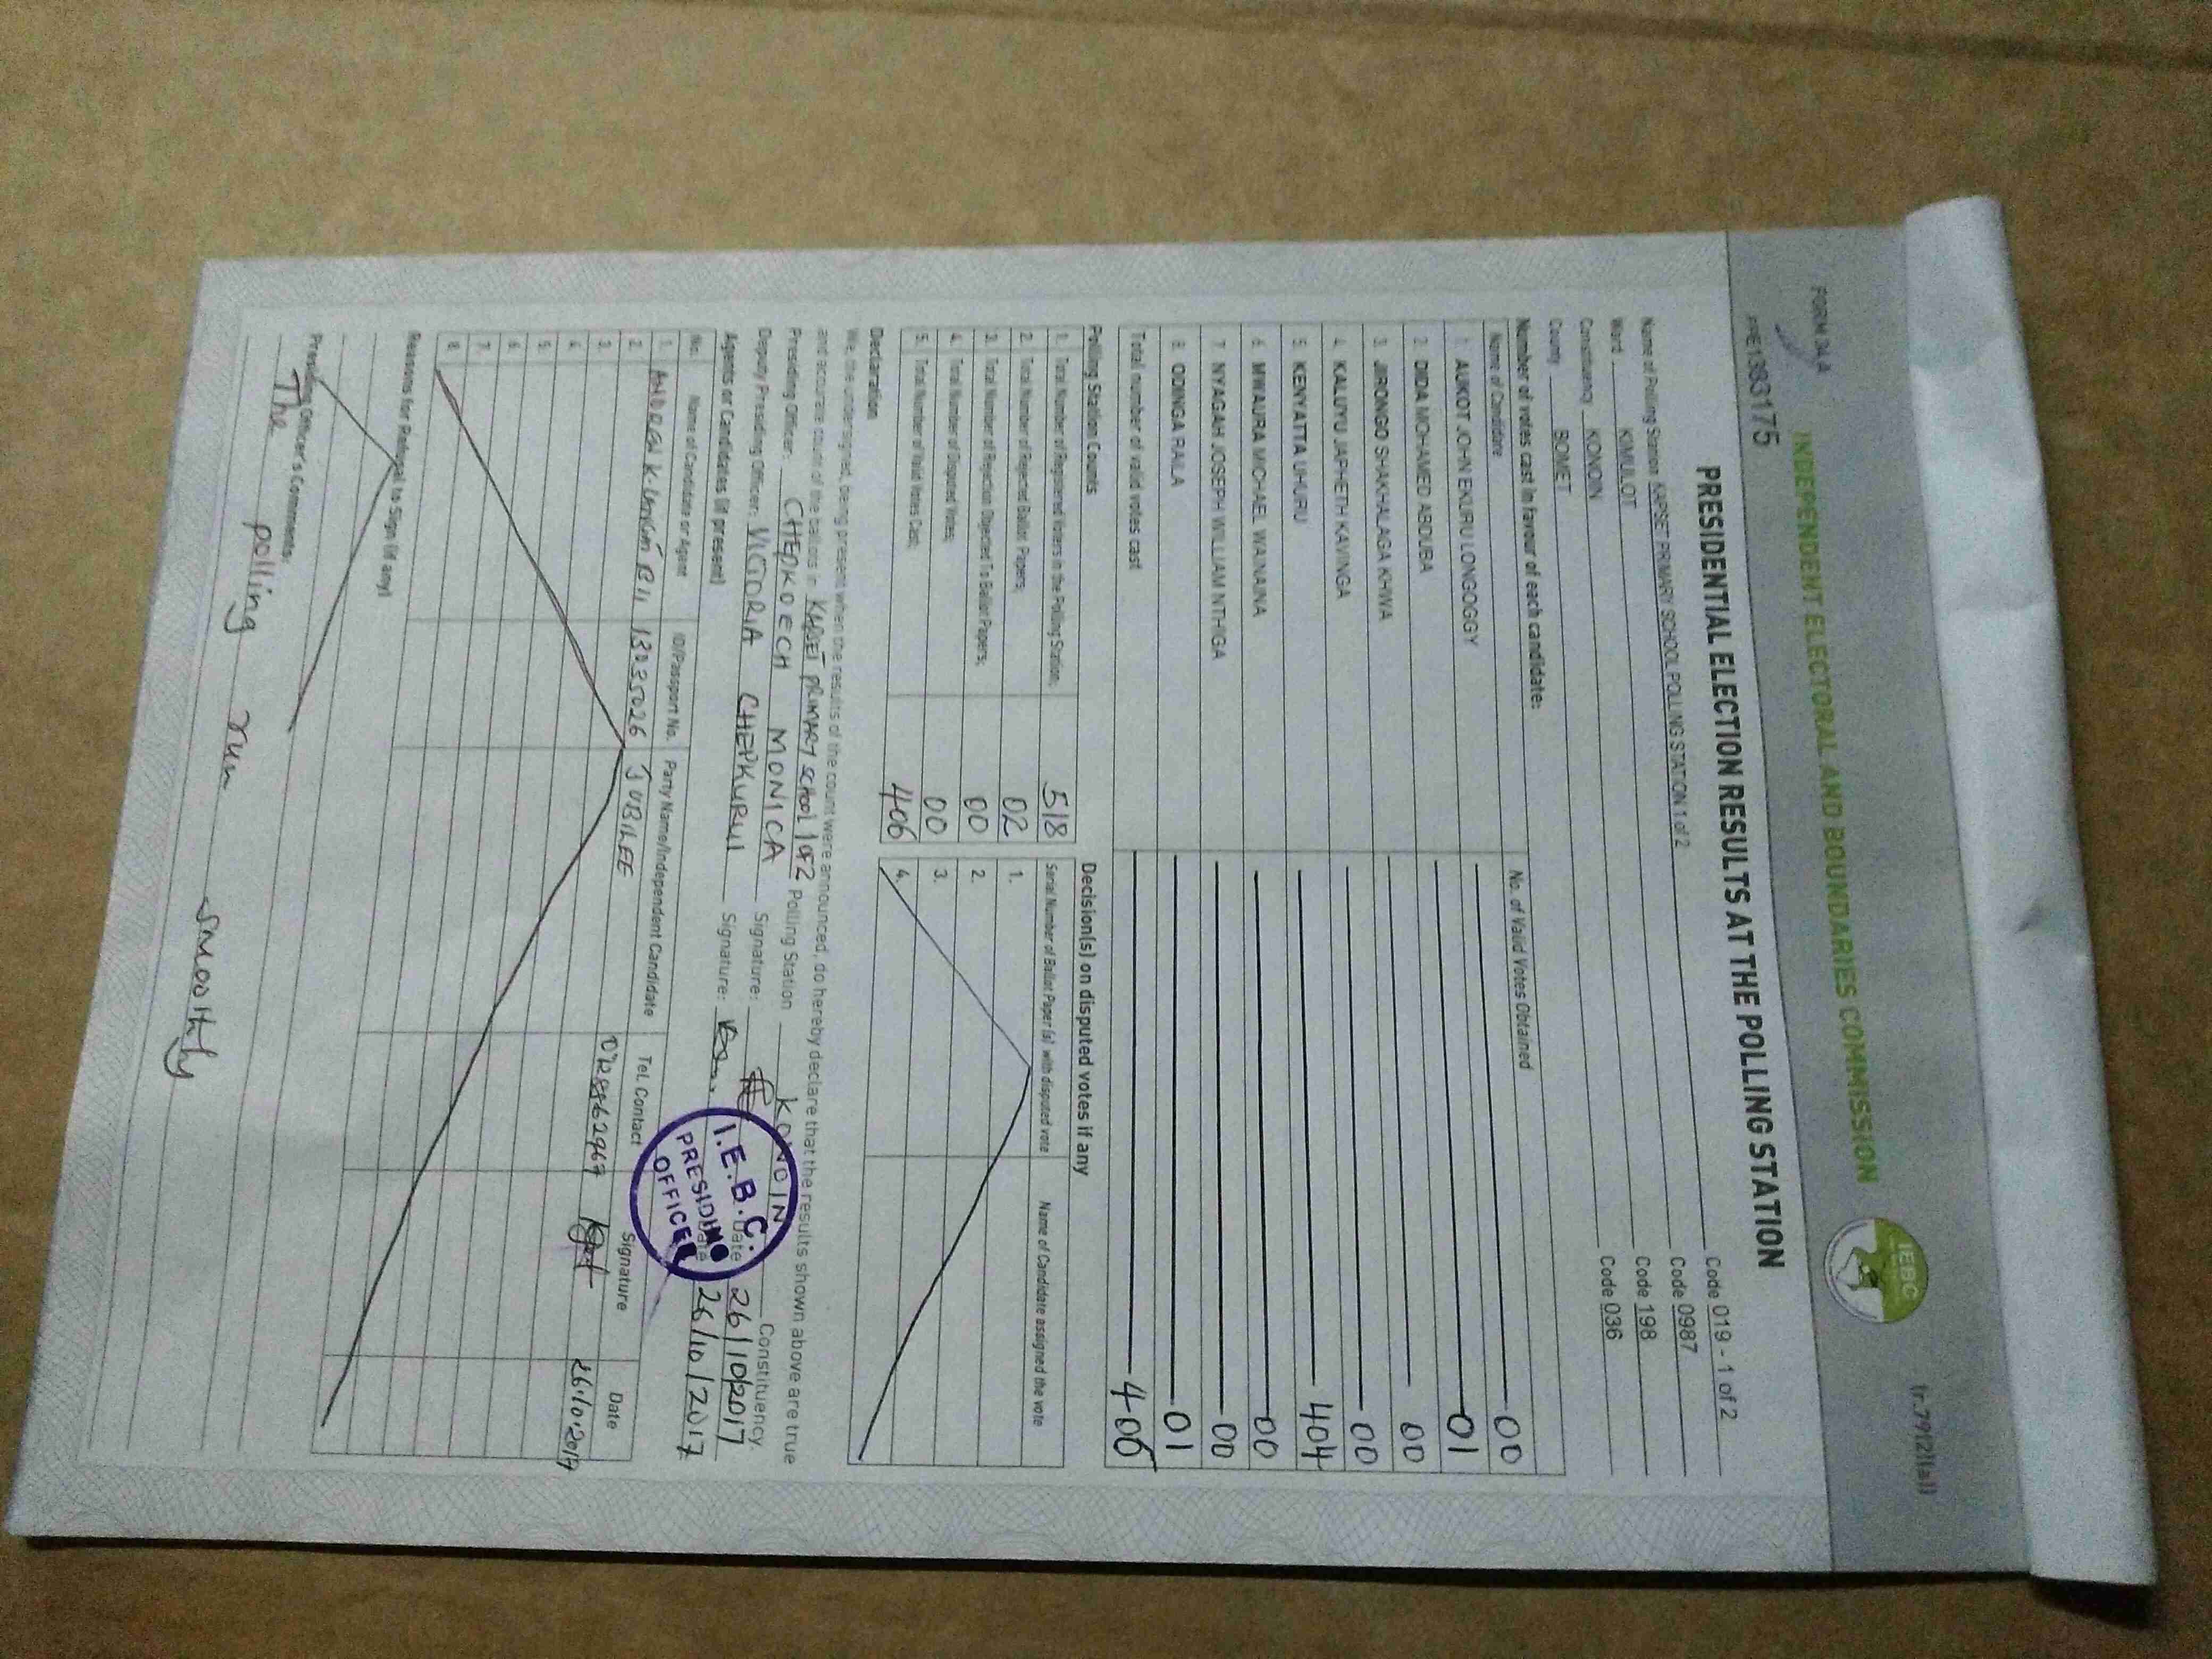 FORM 34A
tr.79(2)(a))
INDEPENDENT ELECTORAL AND BOUNDARIES COMMISSION
IEBC
PRE1383175
PRESIDENTIAL ELECTION RESULTS AT THE POLLING STATION
Name of Polling Station KAPSET PRIMARY SCHOOL POLLING STATION 1 of 2 Code 019 - 1 of 2
Ward KIMULOT Code 0987
Constituency KONOIN Code 198
County BOMET Code 036
Number of votes cast in favour of each candidate:
Name of Candidate No. of Valid Votes Obtained
1. AUKOT JOHN EKURU LONGOGGY 00
2. DIDA MOHAMED ABDUBA 01
3. JIRONGO SHAKHALAGA KHWA 00
4. KALUYU JAPHETH KAVINGA 00
5. KENYATTA UHURU 404
6. MWAURA MICHAEL WAINAINA 00
7. NYAGAH JOSEPH WILLIAM NTHIGA 00
8. ODINGA RAILA 01
Total number of valid votes cast 406
Polling Station Counts
1. Total Number of Registered Voters in the Polling Station: 518
2. Total Number of Rejected Ballot Papers; 02
3. Total Number of Rejection Objected To Ballot Papers; 00
4. Total Number of Disputed Votes; 00
5. Total Number of Valid Votes Cast; 406
Decision(s) on disputed votes if any
Serial Number of Ballot Paper (s) with disputed vote Name of Candidate assigned the vote
1.
2.
3.
4.
Declaration
We, the undersigned, being present when the results of the count were announced, do hereby declare that the results shown above are true
and accurate count of the ballots in KAPSET PRIMARY SCHOOL 1 OF 2 Polling Station KONOIN Constituency.
Presiding Officer: CHEPKOECH MONICA Signature: Date 26/10/2017
Deputy Presiding Officer: VICTORIA CHEPKURUI Signature: Date 26/10/2017
I.E.B.C.
PRESIDING
OFFICER
Agents or Candidates (if present)
No. Name of Candidate or Agent ID/Passport No. Party Name/Independent Candidate Tel. Contact Signature Date
1. ANDREW K. BII 13035026 JUBILEE 26.10.2017
2.
3.
4.
5.
6.
7.
8.
Reasons for Refusal to Sign (if any)
Presiding Officer's Comments:
The polling run smoothly